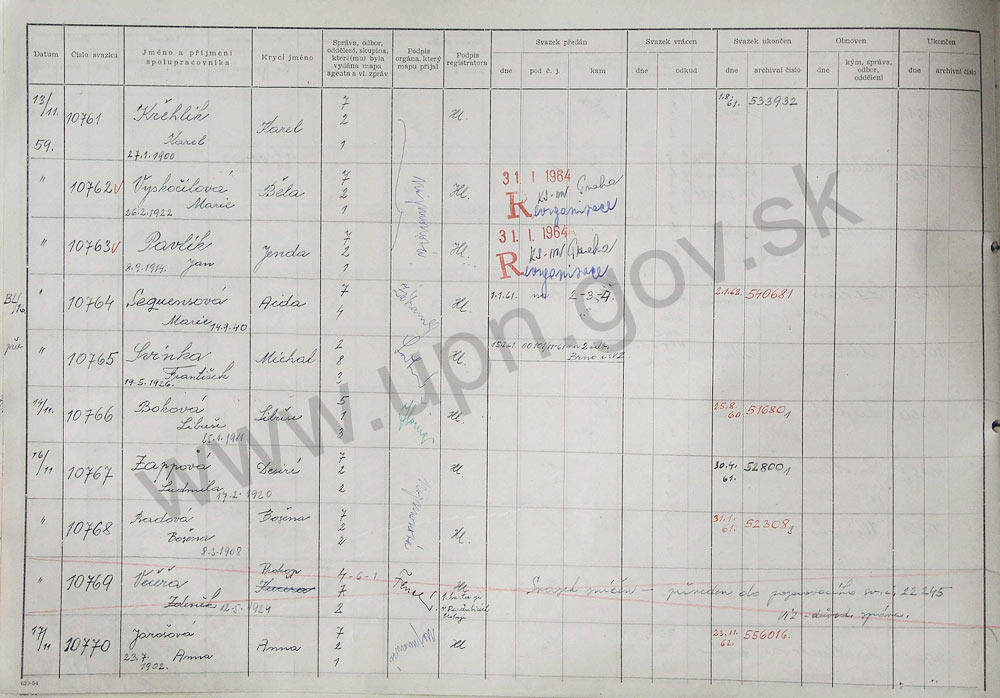 Datum
Číslo svazku
Jméno a příjmení
spolupracovníka
Krycí jméno
Správa, odbor,
oddělení, skupina,
které(mu) byla
vydána mapa
agenta a vl. zpráv
Podpis
orgána, který
mapu přijal
Podpis
registrátora
Svazek předán
dne pod č. j. kam
Svazek vrácen
dne odkud
Svazek ukončen
dne archivní číslo
Obnoven
dne kým, správa,
odbor,
oddělení
Ukončen
dne archivní číslo
13/11. 59. 10761 Křehlík
Karel
27.1.1900
Karel
7
2
1
Hl.
1.8.
61. 533932
" 10762 v Vyskočilová
Marie
26.2.1922
Běla
7
2
1
Hl.
31 I 1964
KS-MV Praha
Reorganisace
" 10763 v Pavlík
8.9.1914. Jan
Jenda
7
2
1
Hl.
31. I. 1964
KS-MV Praha
Reorganisace
" 10764 Seguensová
Marie 14.9.40
Aida
7
4
Hl.
1.1.61. na 2-3-4.
2.1.62. 540681
" 10765 Svinka
František
19.5.1926.
Michal
2
8
3
Hl.
Brno
14/11. 10766 Boková
Libuše
Libuše
5
1
3
Hl.
25.8.
60 516801
16/11 10767 Zappová
Ludmila 14.2.1920
Desiré
7
2
2
Hl.
30.4.
61. 528001
" 10768 Radová
Božena
8.3.1908
Božena
7
2
2
Hl.
31.1.
61. 523083
" 10769 Večeřa
Zdeněk 12.5.1924
Prokop
4-6-1
7
2
Hl.
Svazek zničen – převeden do pozorovacího sv. č. 22245
17/11 10770 Jarošová
23.7.
1902. Anna
Anna
7
2
1
Hl
23.11.
62. 556016.
www.upn.gov.sk